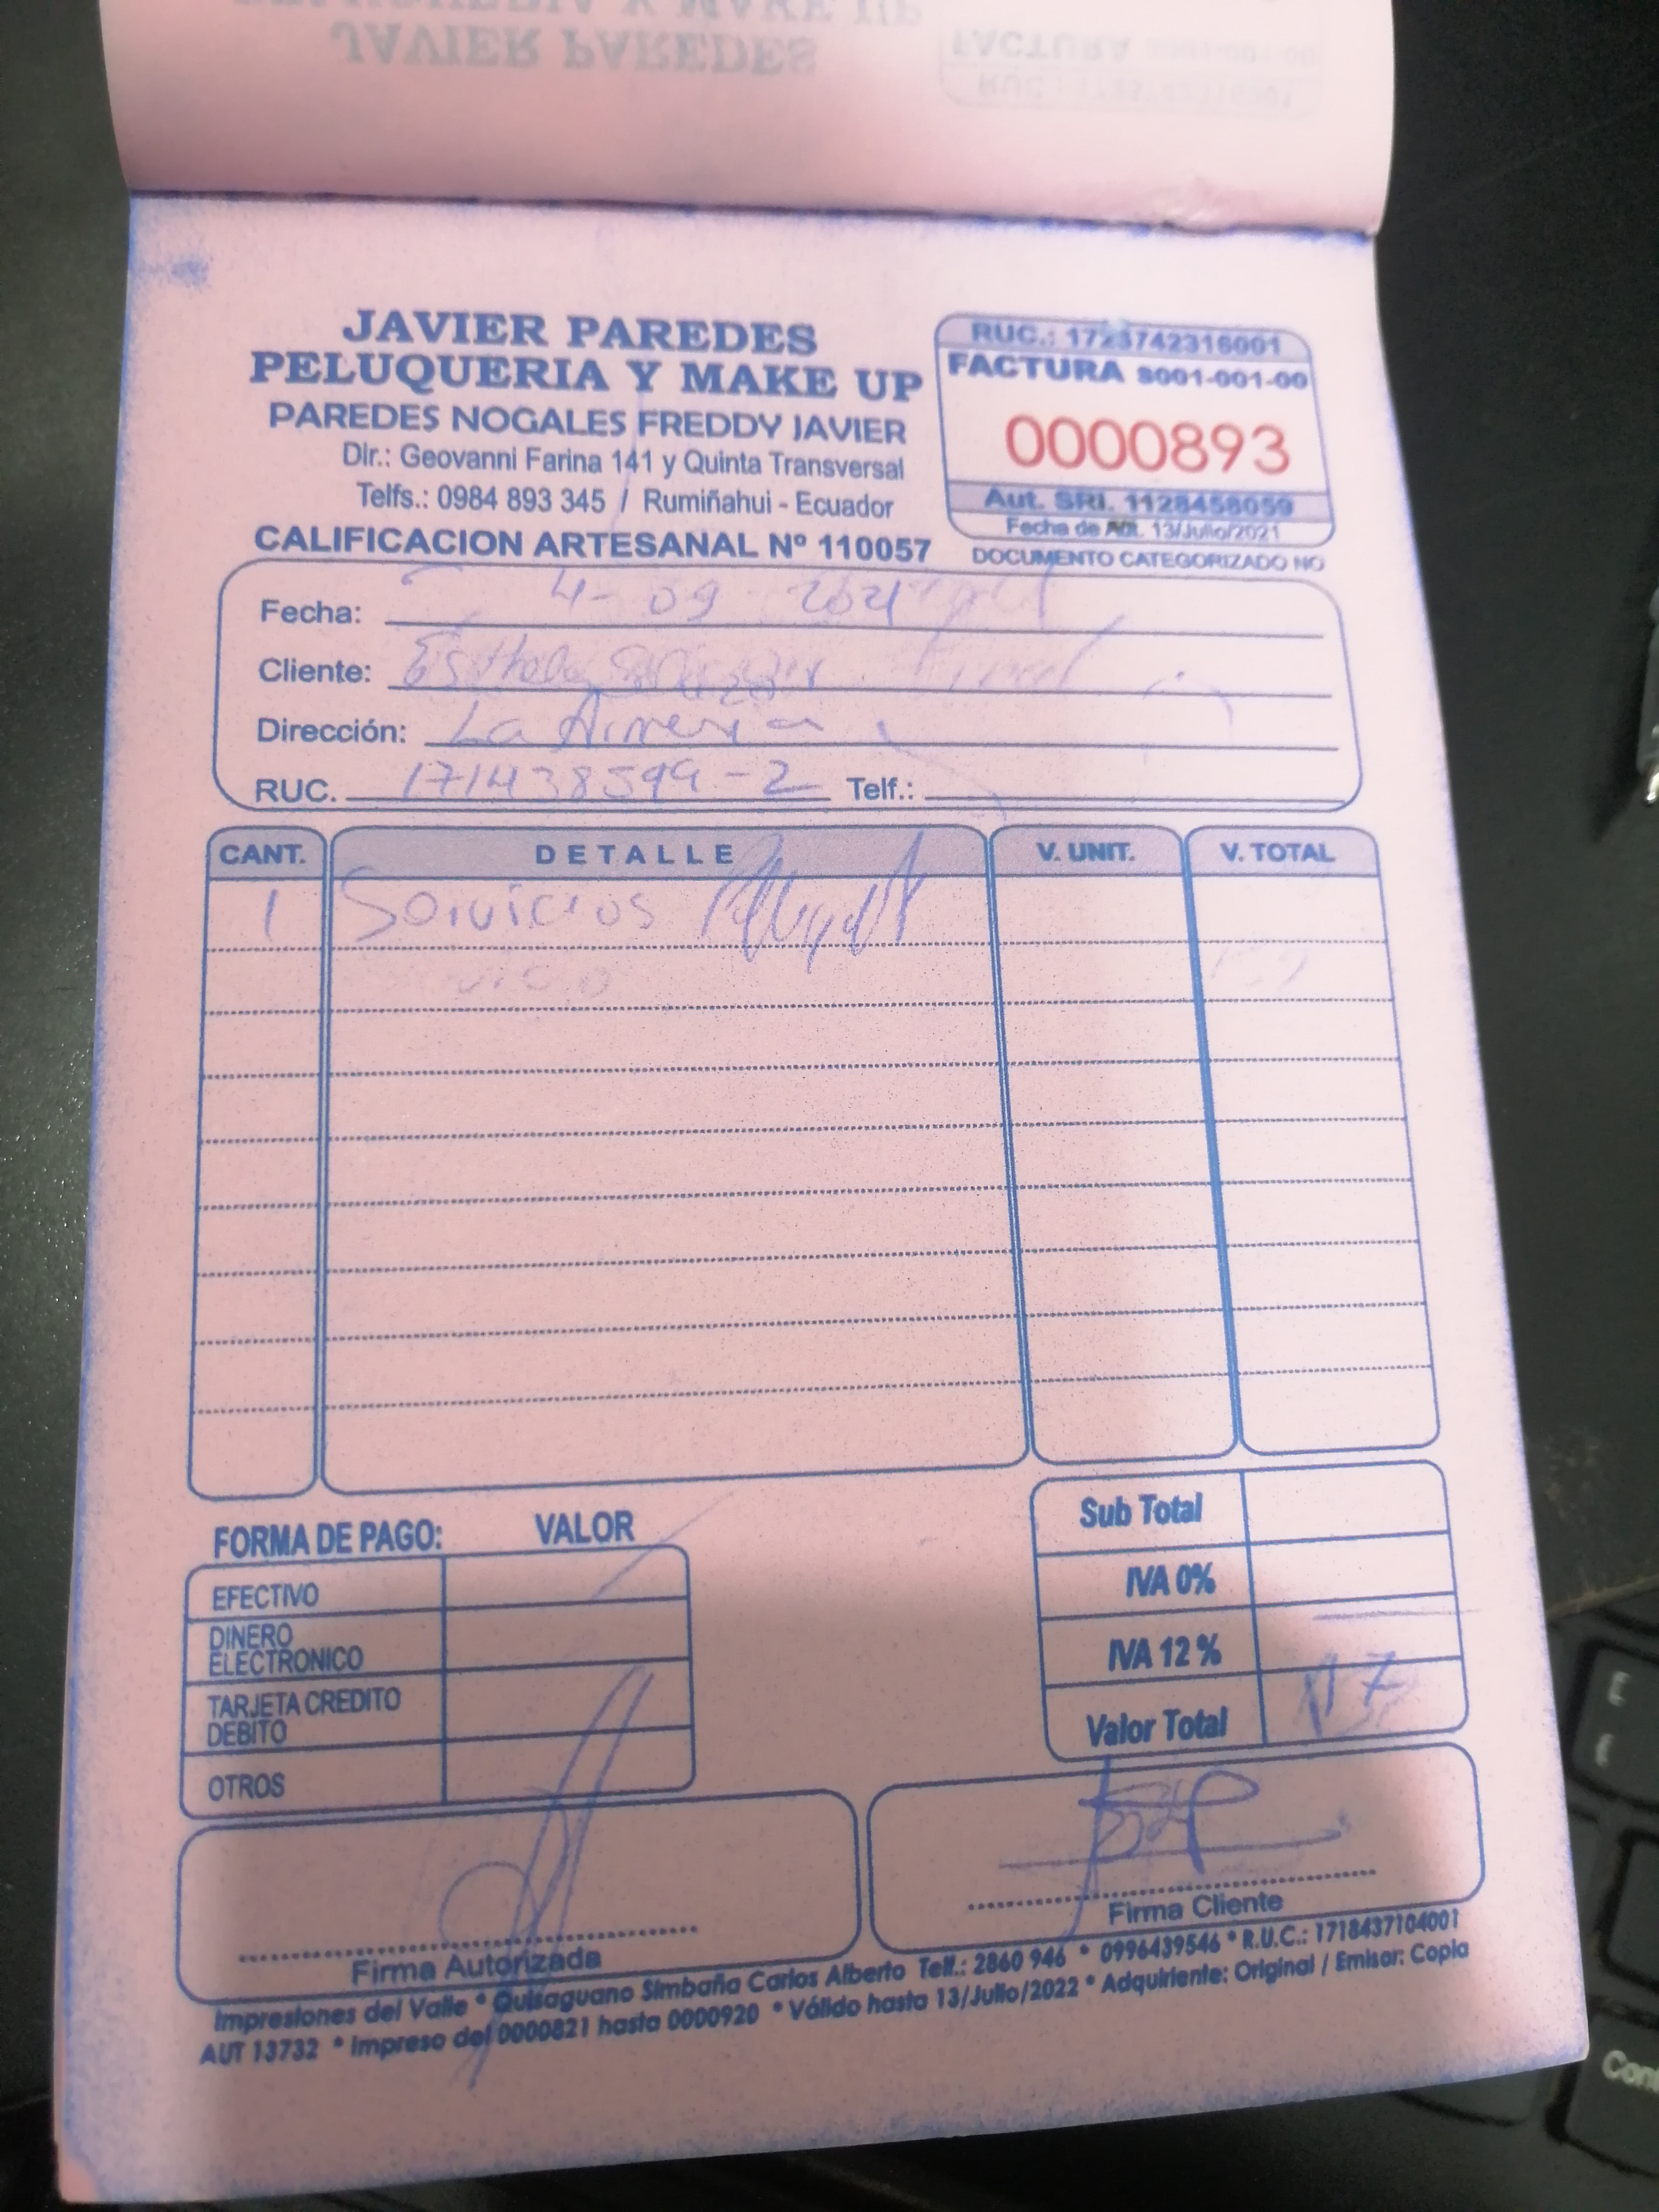 JAVIER PAREDES
PELUQUERIA Y MAKE UP
PAREDES NOGALES FREDDY JAVIER
Dir.: Geovanni Farina 141 y Quinta Transversal
Telfs.: 0984 893 345 / Rumiñahui - Ecuador
CALIFICACION ARTESANAL Nº 110057
RUC.: 1723742316001
FACTURA S001-001-00
0000893
Aut. SRI. 1128458059
Fecha de Aut. 13/Julio/2021
DOCUMENTO CATEGORIZADO NO
Fecha: 4-09 2021
Cliente:
Dirección: La Armenia
RUC. 171438599-2 Telf.:
CANT. DETALLE V. UNIT. V. TOTAL
1 Servicios
FORMA DE PAGO: VALOR
EFECTIVO
DINERO ELECTRONICO
TARJETA CREDITO DEBITO
OTROS
Sub Total
IVA 0%
IVA 12 %
Valor Total 17
Firma Autorizada
Firma Cliente
Impresiones del Valle * Quisaguano Simbaña Carlos Alberto Telf.: 2860 946 * 0996439546 * R.U.C.: 1718437104001
AUT 13732 * Impreso del 0000821 hasta 0000920 * Válido hasta 13/Julio/2022 * Adquiriente: Original / Emisor: Copia